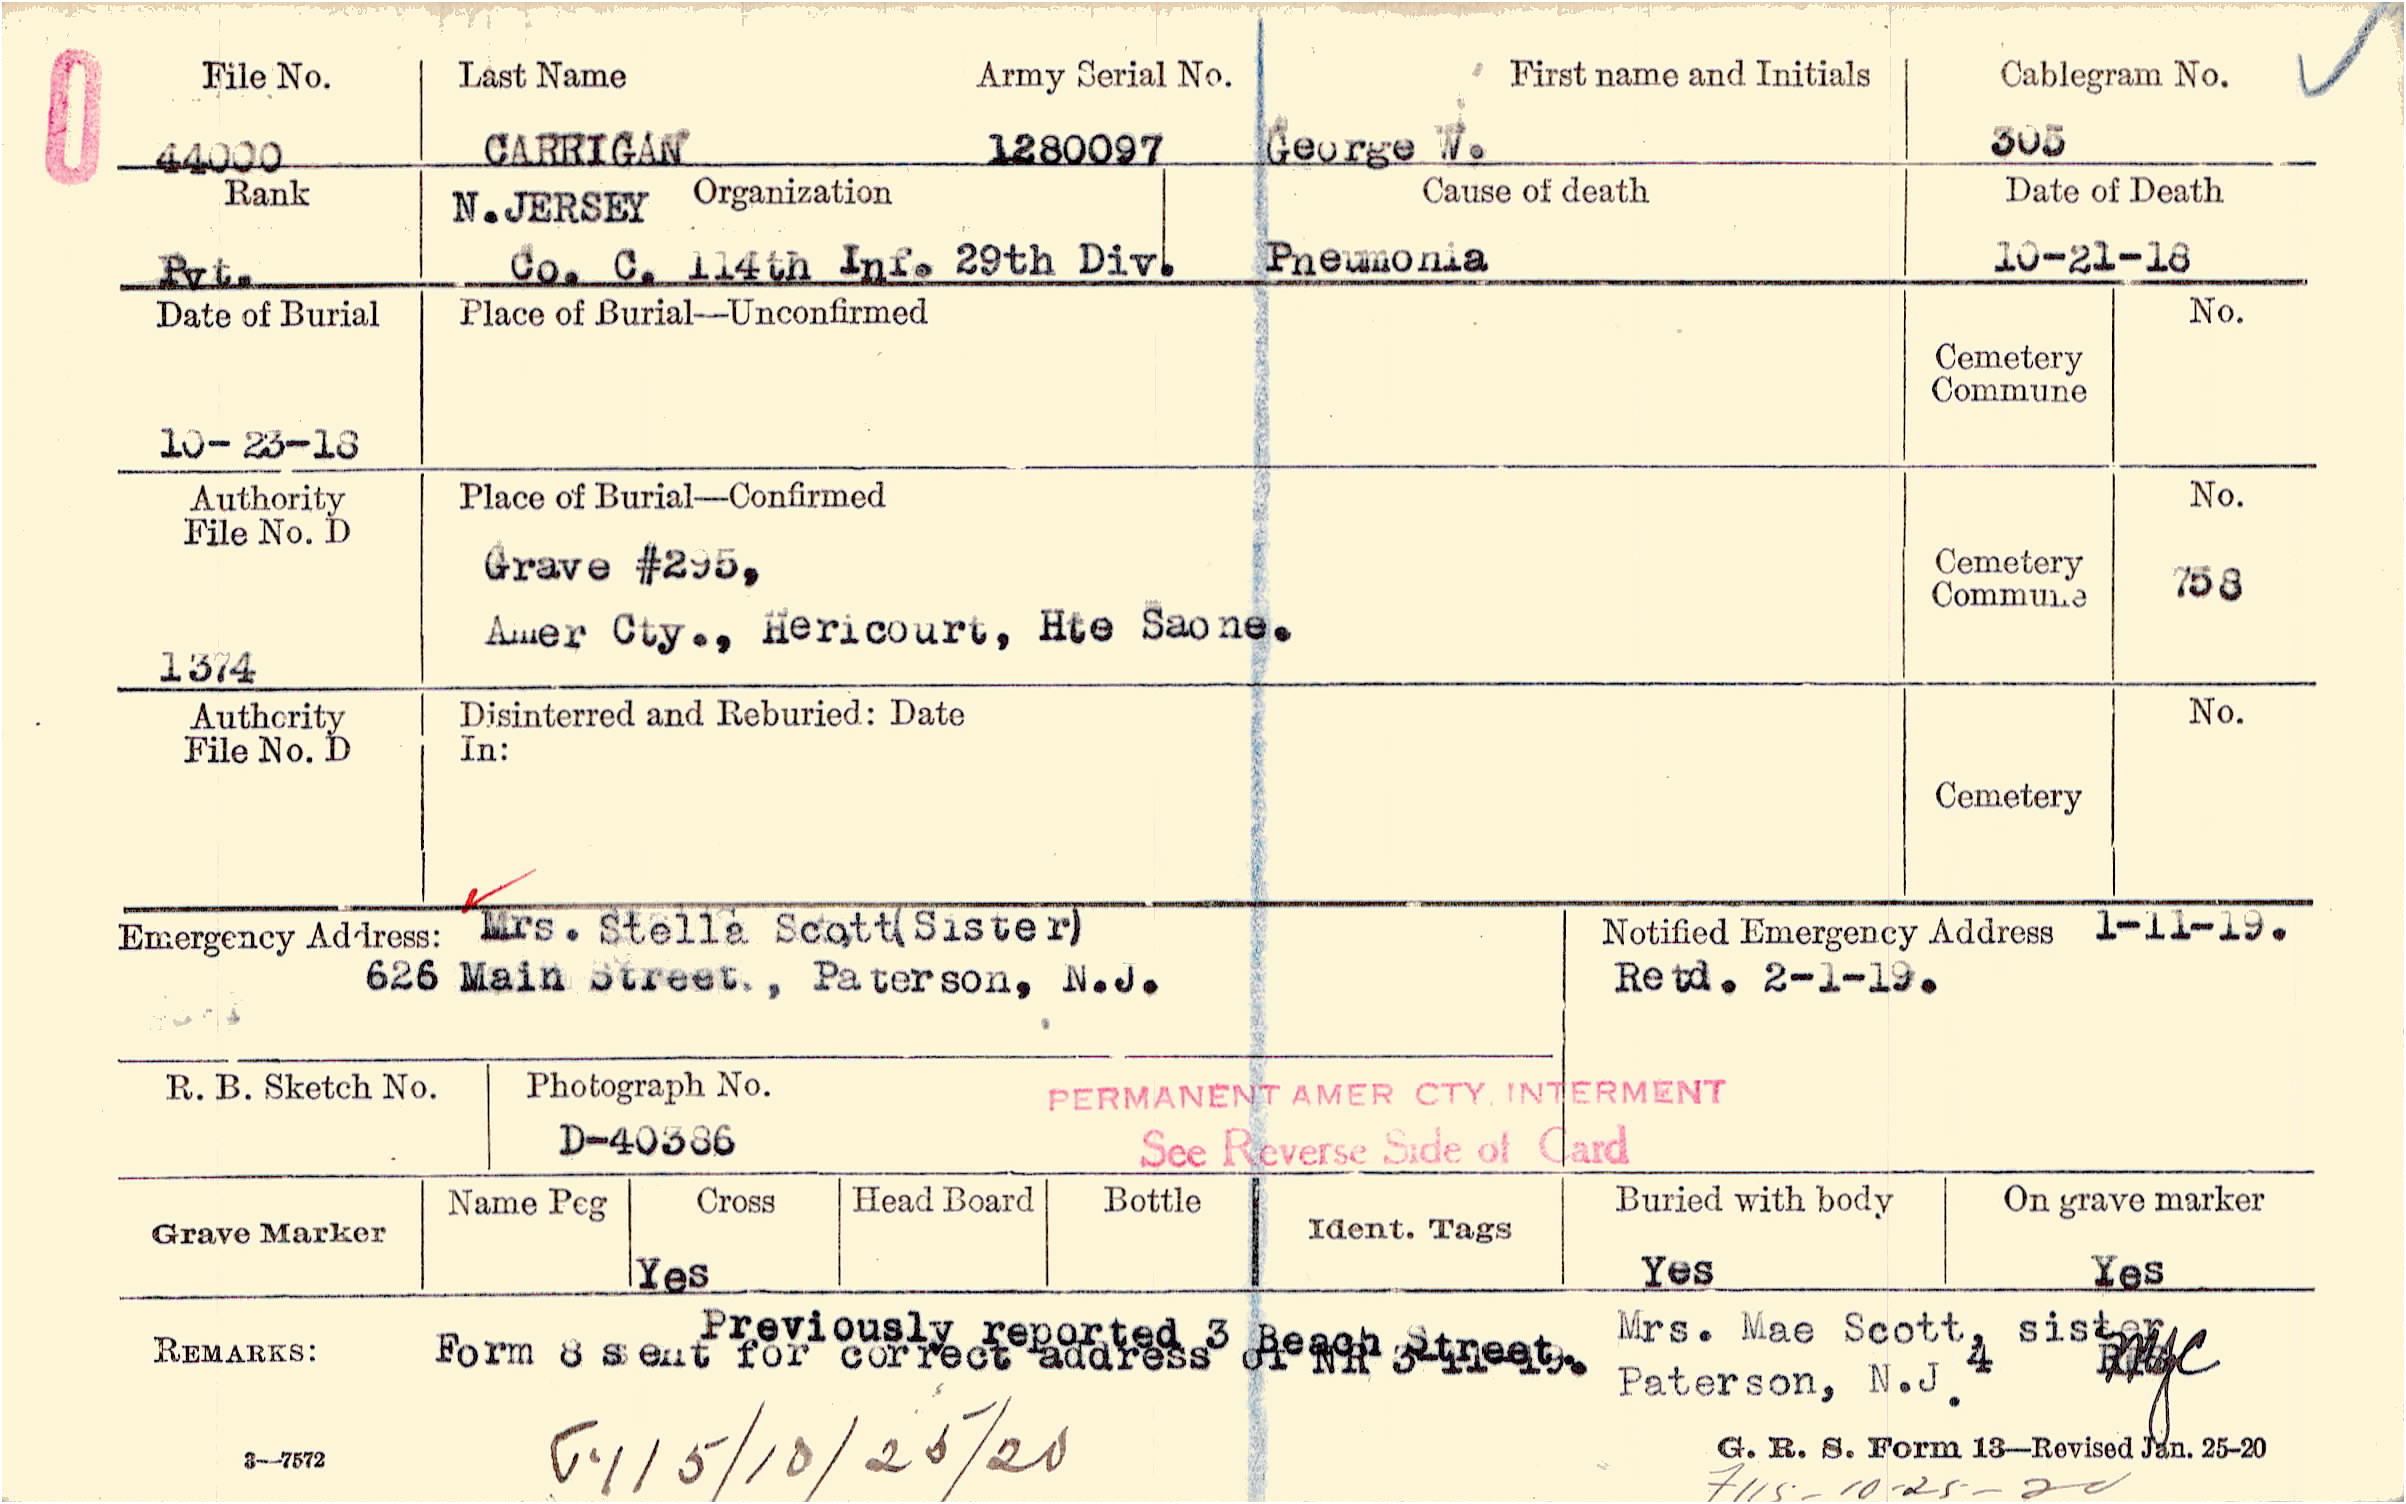 File No. Last Name Army Serial No. First name and Initials Cablegram No.
44000 CARRIGAN 1280097 George W. 305
Rank N.JERSEY Organization Cause of death Date of Death
Pvt. Co. C. 114th Inf. 29th Div. Pneumonia 10-21-18
Date of Burial Place of Burial—Unconfirmed No.
Cemetery
Commune
10-23-18
Authority Place of Burial—Confirmed No.
File No. D
Grave #295, Cemetery 758
Commune
Amer Cty., Hericourt, Hte Saone.
1374
Authority Disinterred and Reburied: Date No.
File No. D In:
Cemetery
Emergency Address: Mrs. Stella Scott(Sister) Notified Emergency Address 1-11-19.
626 Main Street., Paterson, N.J. Retd. 2-1-19.
R. B. Sketch No. Photograph No. PERMANENT AMER CTY. INTERMENT
D-40386 See Reverse Side of Card
Grave Marker Name Peg Cross Head Board Bottle Ident. Tags Buried with body On grave marker
Yes Yes Yes
Previously reported 3 Beach Street. Mrs. Mae Scott, sister
REMARKS: Form 8 sent for correct address of NR 3-11-19. 4
Paterson, N.J.
3—7572 G. R. S. Form 13—Revised Jan. 25-20
7115-10-25-20